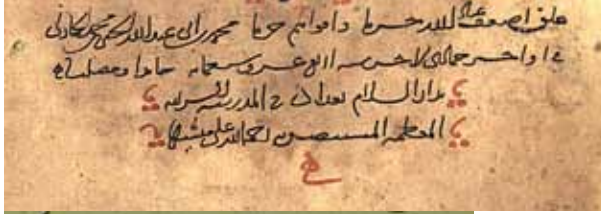 علق اضعف عباد الله جرما واقواهم جرما محمد بن ابى عبد الله
فى اواخر جمادى الاخر سنه اربع عشر وسبعمايه حامدا ومصليا
بدار السلام بغداد فى المدرسه الشريفه
المعظمه المستنصريه رحم الله على منشيها